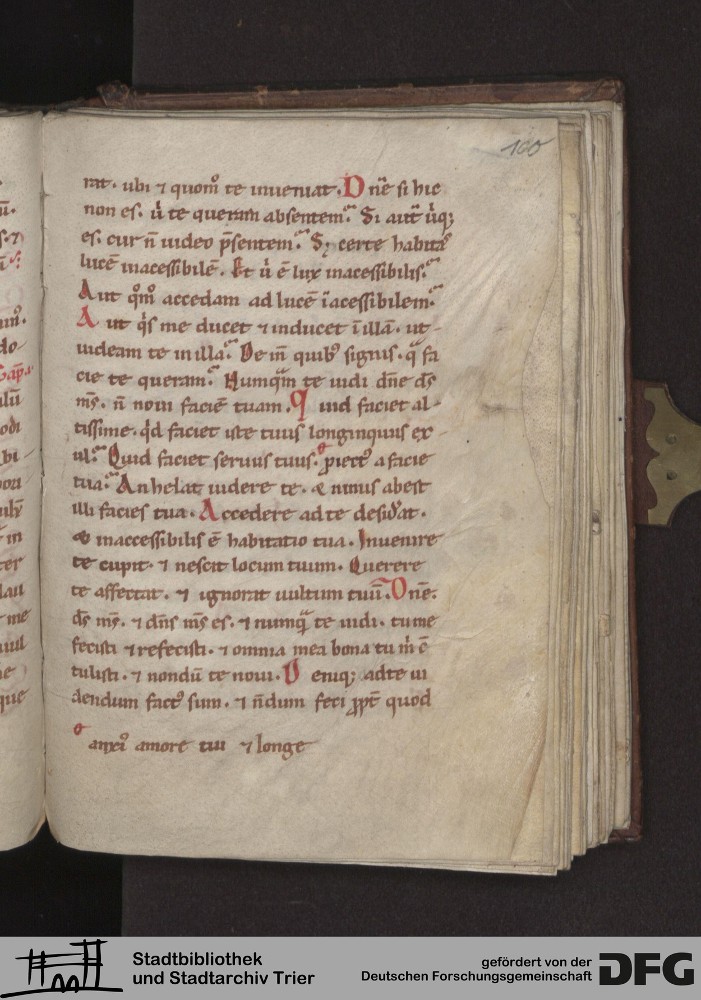 100
rat. ubi ⁊ quom̊ te inueniat. D ne̅ si hic
non es. u̇ te queram absentem. Si aut̅ u̇q;
es. cur n̅ uideo p̅sentem. S; certe habitas
luce̅ inacessibile̅. Et u̇ e̅ lux inacessibilis.
Aut q̊m̊ accedam ad luce̅ i̅acessibilem.
A ut q̇s me ducet ⁊ inducet i̅ illa̅. ut
uideam te in illa. De in̅ quib⁹ signis. q̇ fa
cie te queram. Numqᷓm te uidi dn̅e ds̅
ms̅. n̅ noui facie̅ tuam. Q uid faciet al-
tissime. q̇d faciet iste tuus longinquus ex
ul. Quid faciet seruus tuus. p̱iect⁹ a facie
tua. Anhelat uidere te. & nimis abest
illi facies tua. Accedere ad te desid̓at.
& inaccessibilis e̅ habitatio tua. Inuenire
te cupit. ⁊ nescit locum tuum. Querere
te affectat. ⁊ ignorat uultum tuu̅. D ne̅.
ds̅ ms̅. ⁊ dn̅s ms̅ es. ⁊ numqᷓ te uidi. tu me
fecisti ⁊ refecisti. ⁊ omnia mea bona tu ṁ c̅
tulisti. ⁊ nondu̅ te noui. D eniq; ad te ui
dendum fact⁹ sum. ⁊ n̅dum feci ꝓpt̅ quod
anxi⁹ amore tui ⁊ longe
Stadtbibliothek
und Stadtarchiv Trier
gefördert von der
Deutschen Forschungsgemeinschaft
DFG